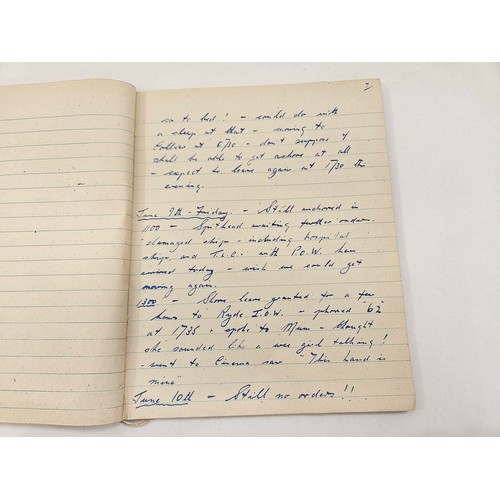 2
so to bed! - could do with
a sleep at that - moving to
Colliers at 0730 - don't suppose I
shall be able to get ashore at all
- expect to leave again at 1730 this
evening.
June 9th - Friday. - Still anchored in
1100 - Spithead awaiting further orders.
damaged ships - including hospital
ships, and T.L.C. with P.O.W. have
arrived today - wish we could get
moving again.
1300 - Shore leave granted for a few
hours to Ryde I.O.W. - phoned "62"
at 1735 - spoke to Mum - thought
she sounded like a wee girl talking!
- went to Cinema saw "This land is
mine"
June 10th - Still no orders!!